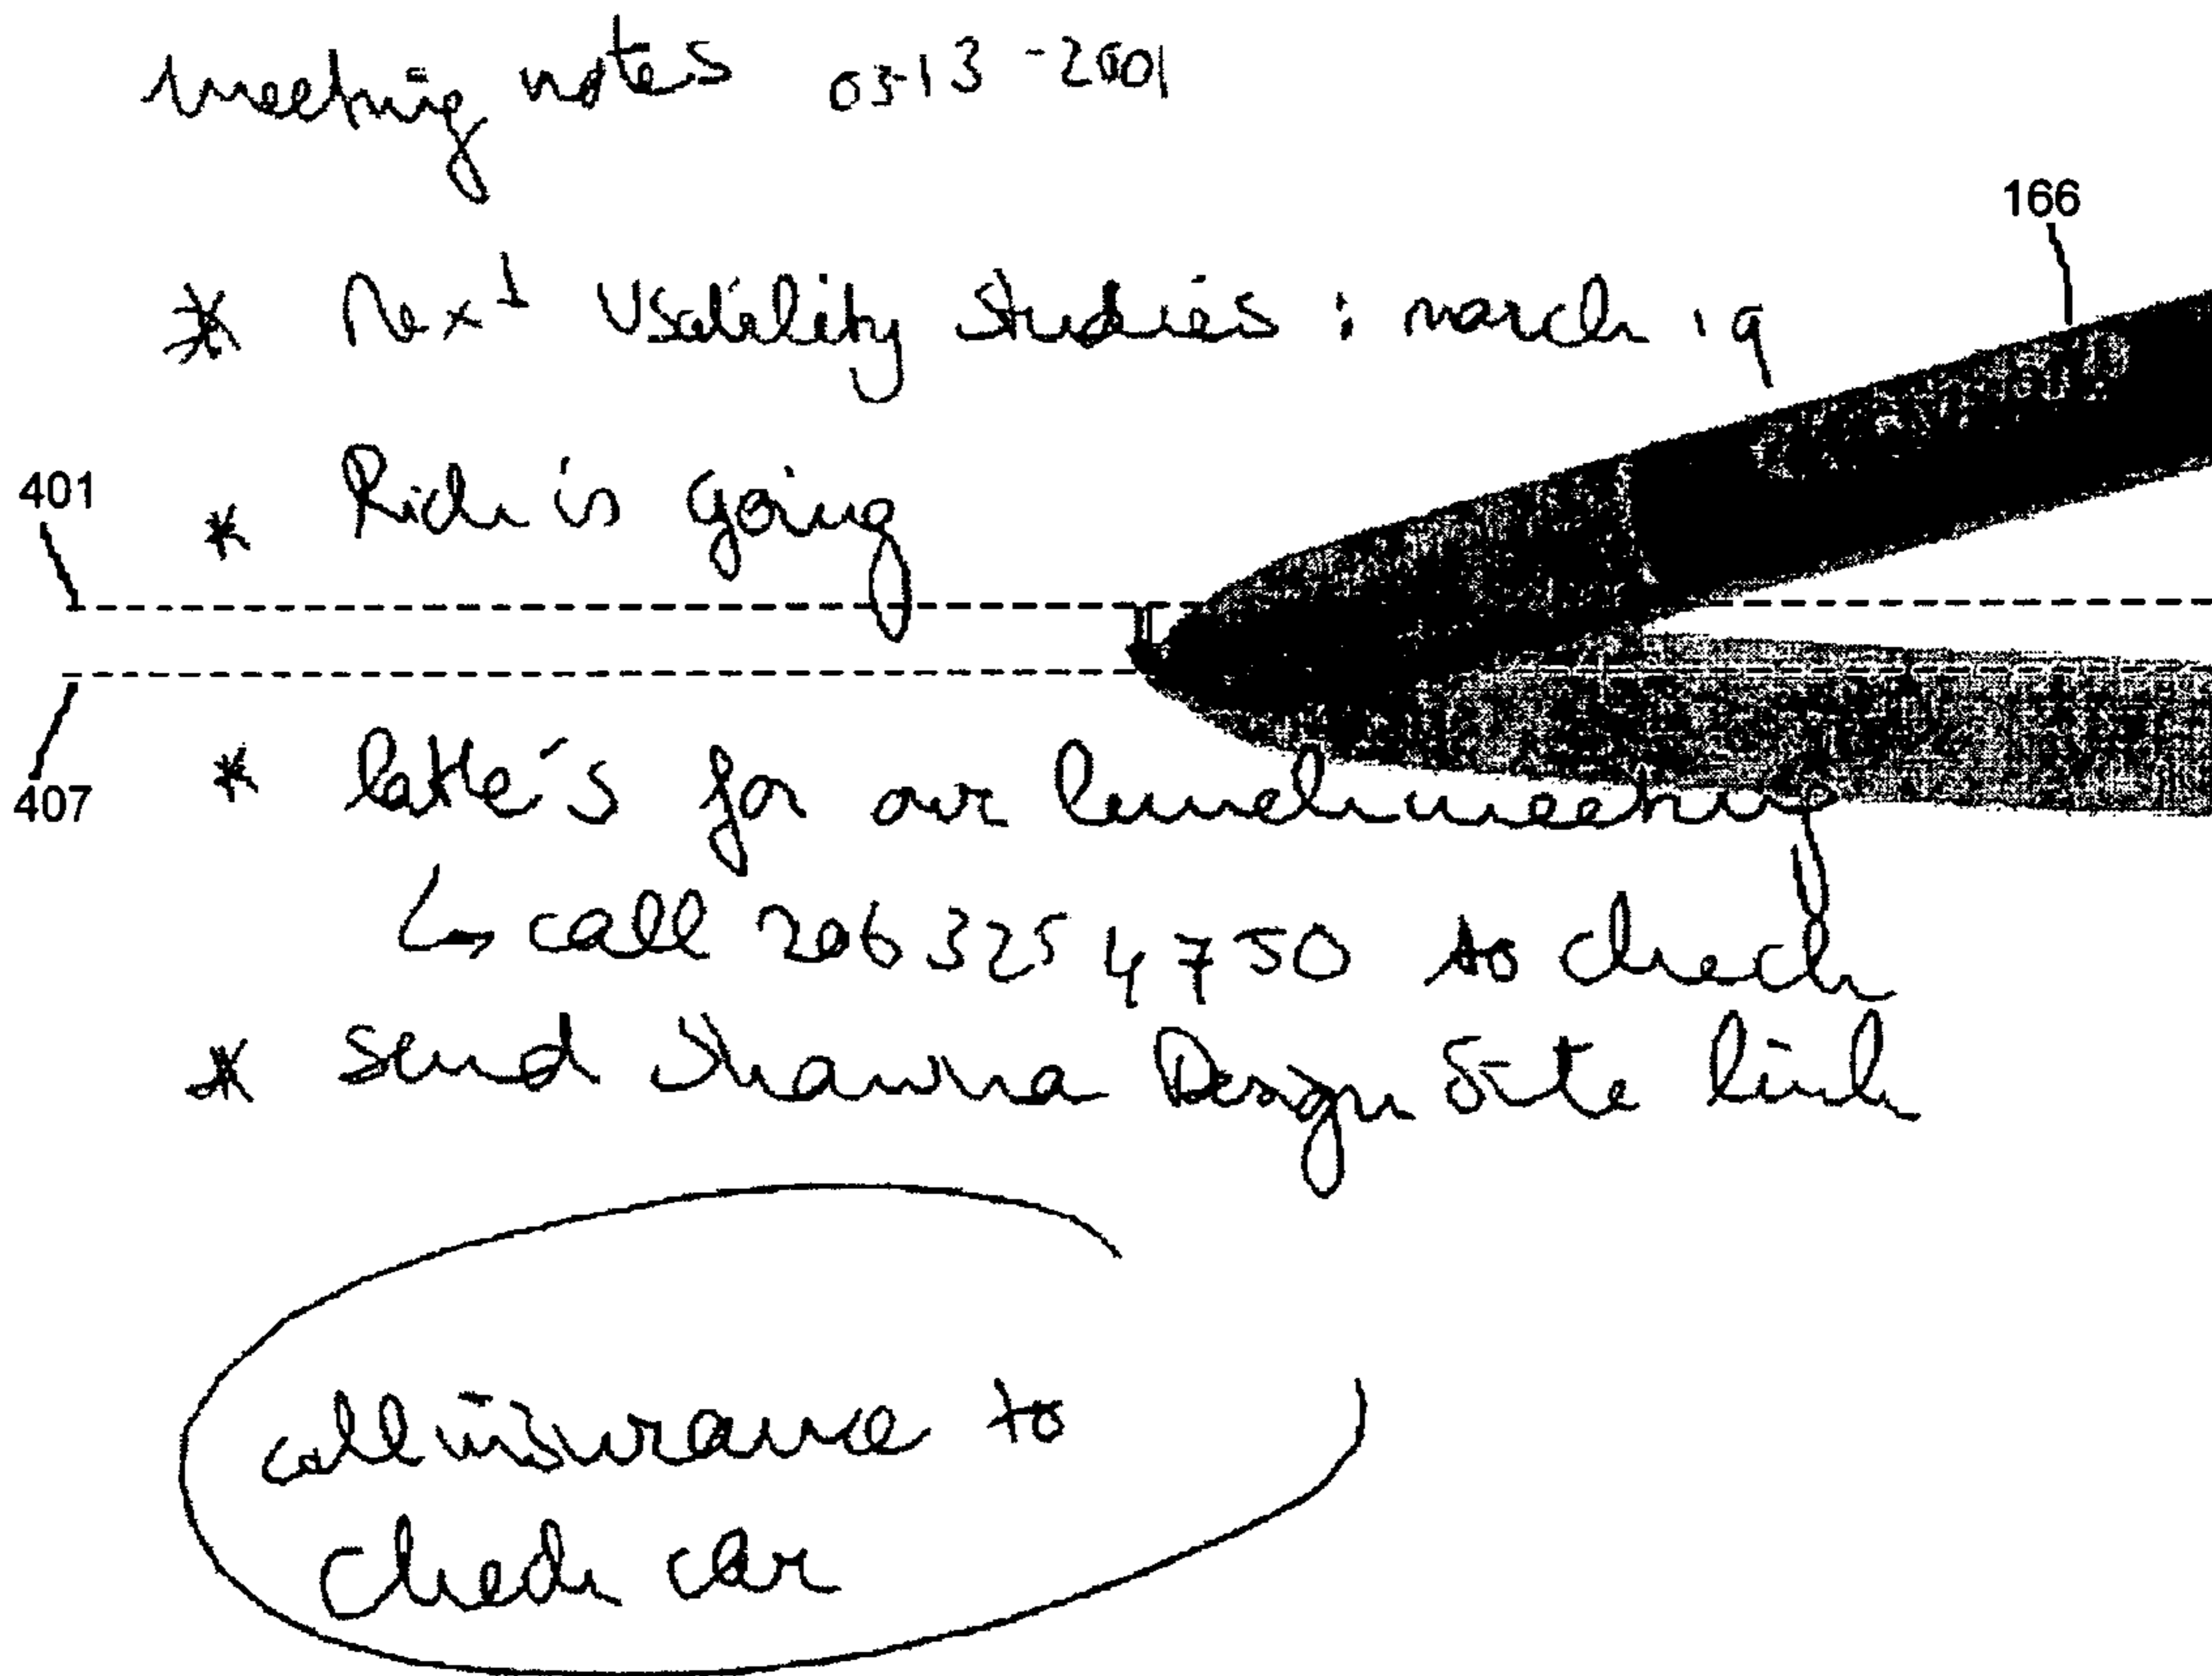 meeting notes 03-13-2001
166
* Next Usability Studies : march 19
401
* Rich is going
407
* latte's for our lunch meeting
↳ call 206 325 4750 to check
* Send Shawna Design Site link
call insurance to
check car